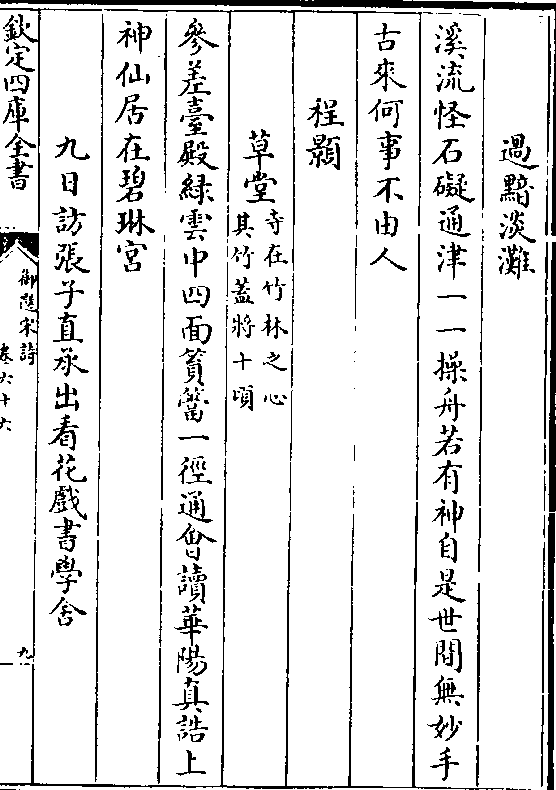 過黯淡灘
溪流怪石礙通津一一操舟若有神自是世間無妙手
古來何事不由人
程顥
草堂寺在竹林之心
其竹蓋將十頃
參差臺殿緑雲中四面篔簹一徑通曾讀華陽真誥上
神仙居在碧琳宫
九日訪張子直承出看花戲書學舍
欽定四庫全書
御選宋詩
卷六十六
九